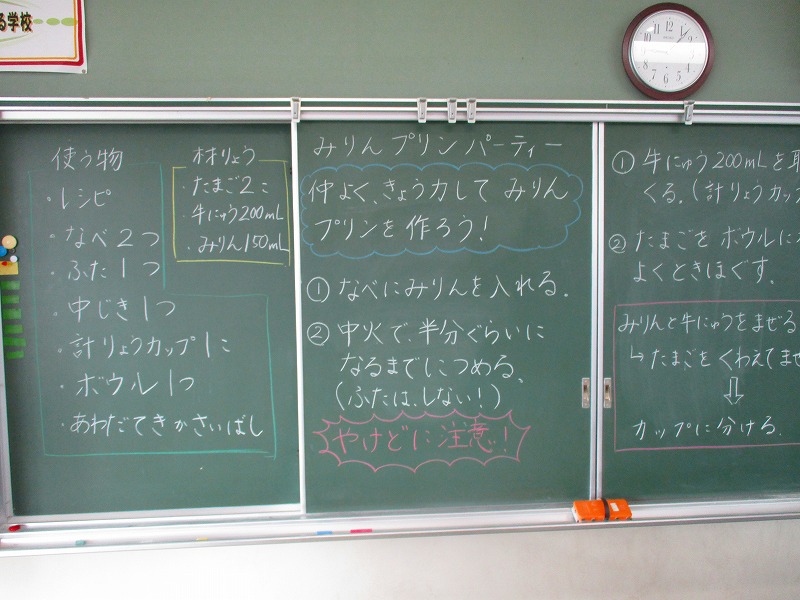 る学校
使う物
・レシピ
・なべ2つ
・ふた1つ
・中じき1つ
・計りょうカップ1こ
・ボウル1つ
・あわだてきかさいばし
材りょう
・たまご2こ
・牛にゅう200mL
・みりん150mL
みりんプリンパーティー
仲よく、きょう力して みりん
プリンを作ろう!
① なべにみりんを入れる.
② 中火で、半分ぐらいに
なるまでにつめる、
(ふたは、しない!)
やけどに注意!
① 牛にゅう200mLを
くる.(計りょうカップ
② たまごを ボウルに
よくときほぐす.
みりんと牛にゅうをまぜる
↳ たまごを くわえてませ
⇩
カップに分ける.
12
1
2
3
4
5
6
7
8
9
10
11